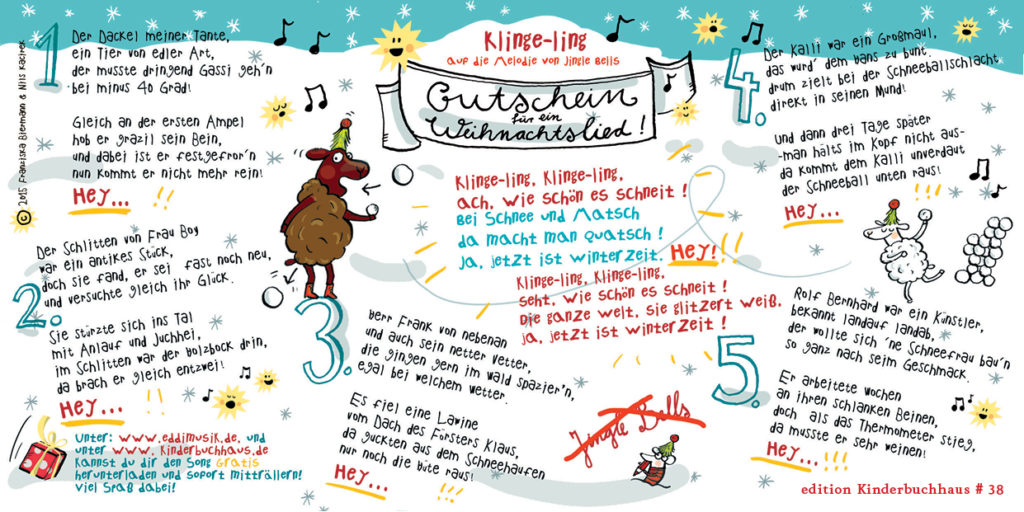 Klinge-ling
auf die Melodie von Jingle Bells
Gutschein
für ein
Weihnachtslied!
Klinge-ling, Klinge-ling,
ach, wie schön es schneit!
Bei Schnee und Matsch
da macht man Quatsch!
Ja, jetzt ist Winterzeit. Hey!
Klinge-ling, Klinge-ling,
seht, wie schön es schneit!
Die ganze Welt, sie glitzert weiß,
ja, jetzt ist Winterzeit!
1
Der Dackel meiner Tante,
ein Tier von edler Art,
der musste dringend Gassi geh'n
bei minus 40 Grad!
Gleich an der ersten Ampel
hob er grazil sein Bein,
und dabei ist er festgefror'n
nun kommt er nicht mehr rein!
Hey... !!
2.
Der Schlitten von Frau Boy
war ein antikes Stück,
doch sie fand, er sei fast noch neu,
und versuchte gleich ihr Glück.
Sie stürzte sich ins Tal
mit Anlauf und Juchhei,
im Schlitten war der Holzbock drin,
da brach er gleich entzwei!
Hey... !!
3.
Herr Frank von nebenan
und auch sein netter Vetter,
die gingen gern im Wald spazier'n,
egal bei welchem Wetter.
Es fiel eine Lawine
vom Dach des Försters Klaus,
da guckten aus dem Schneehaufen
nur noch die Hüte raus!
Hey... !!!
4.
Der Kalli war ein Großmaul,
das wurd' dem Hans zu bunt,
drum zielt bei der Schneeballschlacht
direkt in seinen Mund!
Und dann drei Tage später
-man hälts im Kopf nicht aus-
da kommt dem Kalli unverdaut
der Schneeball unten raus!
Hey... !!!
5.
Rolf Bernhard war ein Künstler,
bekannt landauf landab,
der wollte sich 'ne Schneefrau bau'n
so ganz nach seim Geschmack.
Er arbeitete Wochen
an ihren schlanken Beinen,
doch als das Thermometer stieg,
da musste er sehr weinen!
Hey... !!!
Unter: www.eddimusik.de, und
unter www.kinderbuchhaus.de
kannst du dir den Song Gratis
herunterladen und sofort mitträllern!
Viel Spaß dabei!
Jingle Bells
© 2015 Franziska Biermann & Nils Kacirek
edition Kinderbuchhaus # 38